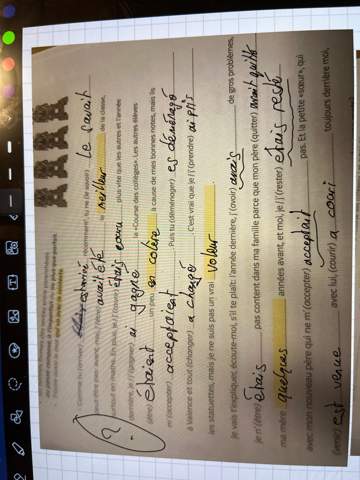 le savait
peut-être pas: avant, moi, j'(être) avait été le meilleur de la classe,
surtout en maths. En plus, je / j' (courir) étais couru plus vite que les autres et l'année
dernière, je / j' (gagner) ai gagné la «Course des collèges». Les autres élèves
(être) étaient un peu en colère à cause de mes bonnes notes, mais ils
m'(accepter) acceptaient. Puis tu (déménager) es déménagé
à Valence et tout (changer) a changé. C'est vrai que je / j' (prendre) ai pris
les statuettes, mais je ne suis pas un vrai voleur
je vais t'expliquer, écoute-moi, s'il te plaît: l'année dernière, j'(avoir) avais de gros problèmes,
je n'(être) étais pas content dans ma famille parce que mon père (quitter) avait quitté
ma mère quelques années avant, et moi, je / j' (rester) étais resté
avec mon nouveau père qui ne m'(accepter) acceptait pas. Et la petite «sœur», qui
(venir) est venue avec lui, (courir) a couri toujours derrière moi,